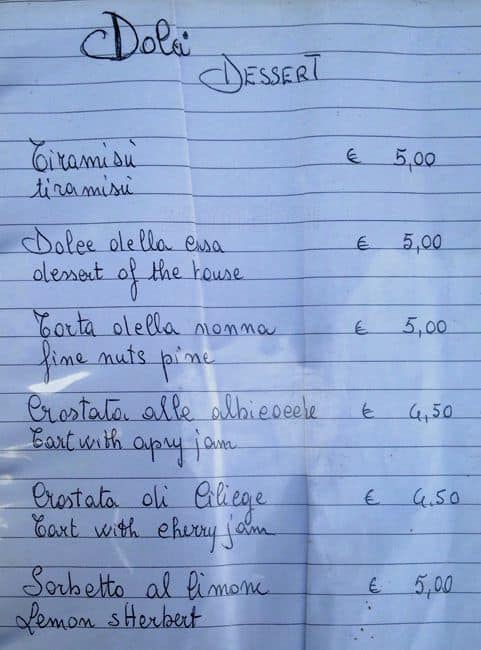 Dolci
DESSERT
Tiramisù € 5,00
tiramisù
Dolce della casa € 5,00
dessert of the house
Torta della nonna € 5,00
fine nuts pine
Crostata alle albicocche € 4,50
Tart with apry jam
Crostata di Ciliege € 4.50
Tart with cherry jam
Sorbetto al limone € 5,00
Lemon sHerbert